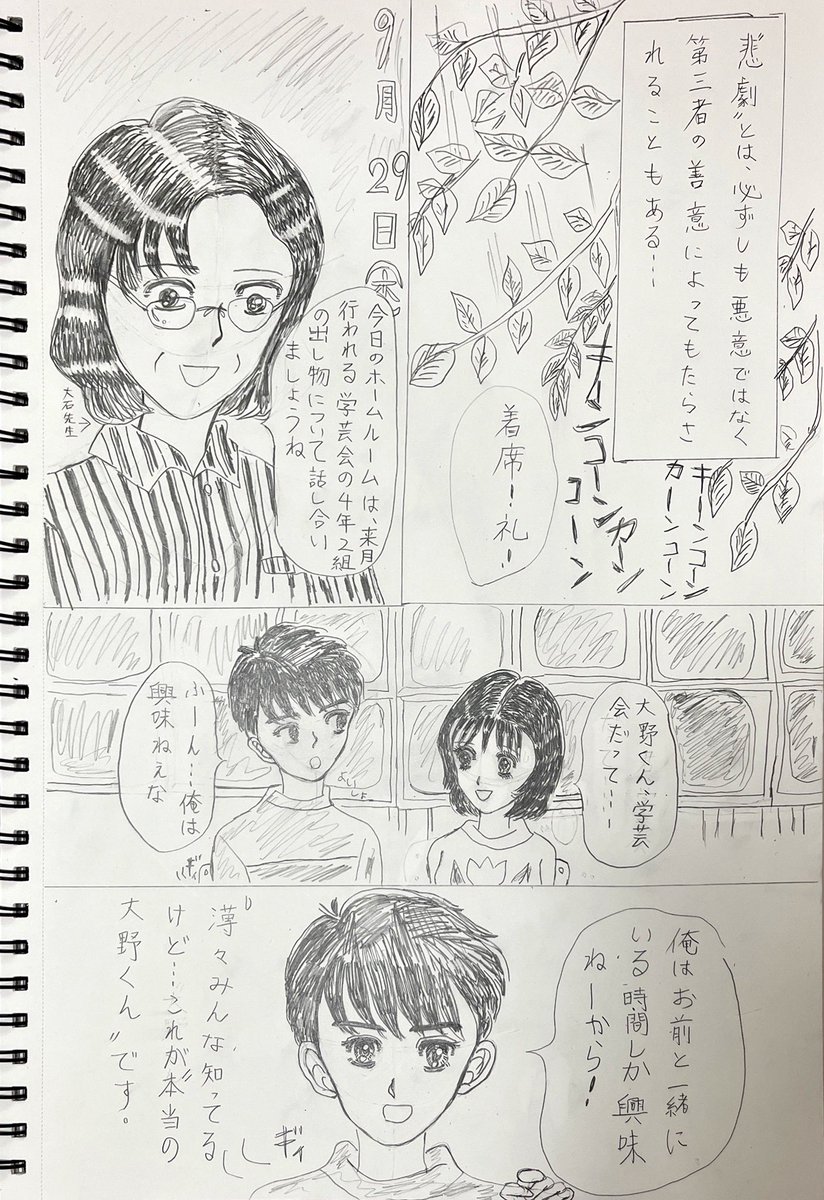 “悲劇”とは、必ずしも悪意ではなく
第三者の善意によってもたらさ
れることもある…
キーンコーン
カーンコーン
キーンコーンカーン
コーン
着席ー礼ー
9月29日(金)
今日のホームルームは、来月
行われる学芸会の4年2組
の出し物について話し合い
ましょうね
大石先生→
大野くん、学芸
会だって…
よいしょ
ふーん…俺は
興味ねぇな
ギィ
俺はお前と一緒に
いる時間しか興味
ねーから!
ギィ
薄々みんな知ってる
けど…これが“本当の
大野くん”です。